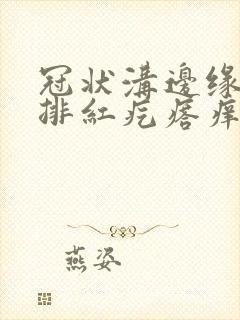 冠狀溝邊缘
排紅疙瘩痒
燕姿